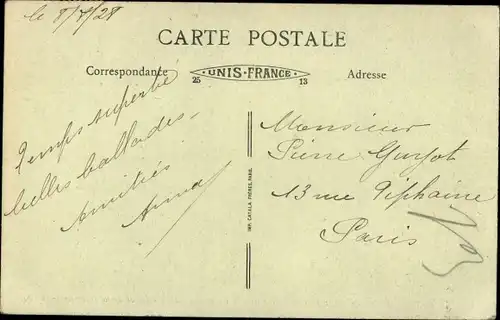 le 8/7/28
CARTE POSTALE
Correspondance
UNIS-FRANCE
25
13
Adresse
Temps superbe
belles ballades.
Amitiés
Anna
IMP. CATALA FRÈRES, PARIS.
Monsieur
Pierre Guyot
13 rue Piphaine
Paris